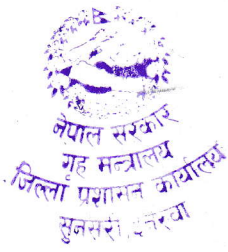 नेपाल सरकार
गृह मन्त्रालय
जिल्ला प्रशासन कार्यालय
सुनसरी